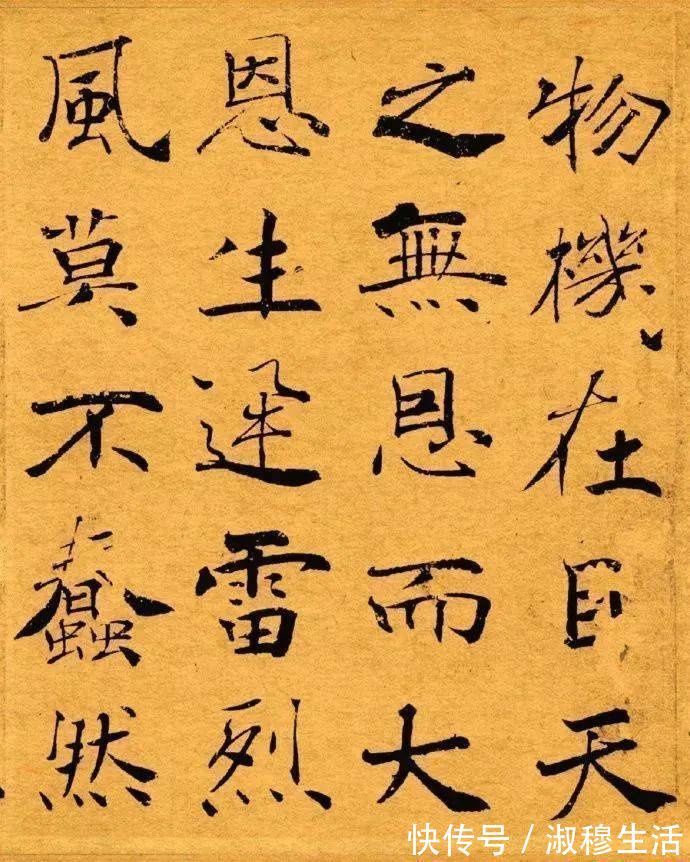 物機在目天
之無恩而大
恩生迅雷烈
風莫不蠢然
快传号 / 淑穆生活